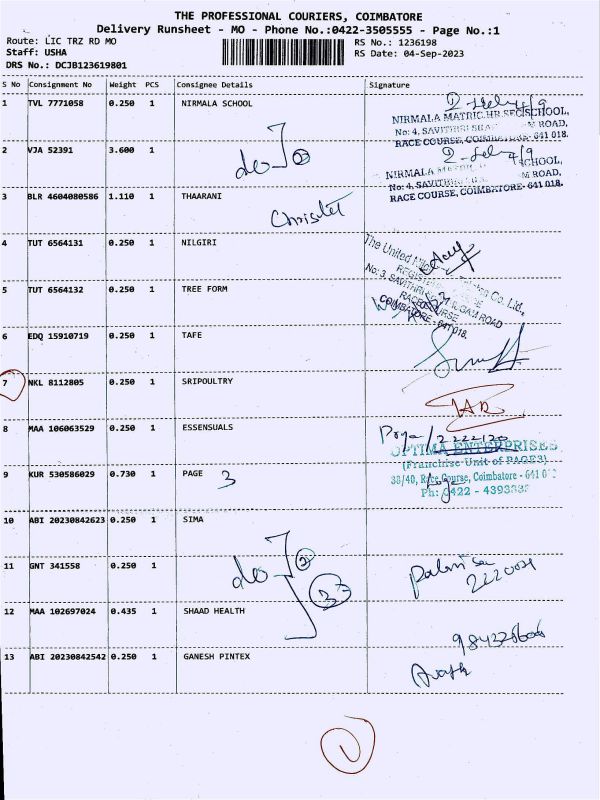 THE PROFESSIONAL COURIERS, COIMBATORE
Delivery Runsheet - MO - Phone No.:0422-3505555 - Page No.:1
Route: LIC TRZ RD MO
RS No.: 1236198
Staff: USHA
RS Date: 04-Sep-2023
DRS No.: DCJB123619801
S No Consignment No Weight PCS Consignee Details Signature
1 TVL 7771058 0.250 1 NIRMALA SCHOOL
4/9
NIRMALA MATRIC.HR.SEC SCHOOL,
No: 4, SAVITHRI ROAD,
RACE COURSE, COIMBATORE- 641 018.
2 VJA 52391 3.600 1
do 2
4/9
NIRMALA SCHOOL,
No: 4, SAVITHRI ROAD,
RACE COURSE, COIMBATORE- 641 018.
3 BLR 4604080586 1.110 1 THAARANI
4 TUT 6564131 0.250 1 NILGIRI
The United Co. Ltd.,
No: 3, SAVITHRI ROAD
RACE COURSE
COIMBATORE - 641 018.
5 TUT 6564132 0.250 1 TREE FORM
6 EDQ 15910719 0.250 1 TAFE
7 NKL 8112805 0.250 1 SRIPOULTRY
8 MAA 106063529 0.250 1 ESSENSUALS
OPTIMA ENTERPRISES
(Franchise Unit of PAGE3)
38/40, Race Course, Coimbatore - 641 0
Ph: 0422 - 4393333
9 KUR 530586029 0.730 1 PAGE 3
10 ABI 20230842623 0.250 1 SIMA
11 GNT 341558 0.250 1
do 2
33
12 MAA 102697024 0.435 1 SHAAD HEALTH
13 ABI 20230842542 0.250 1 GANESH PINTEX